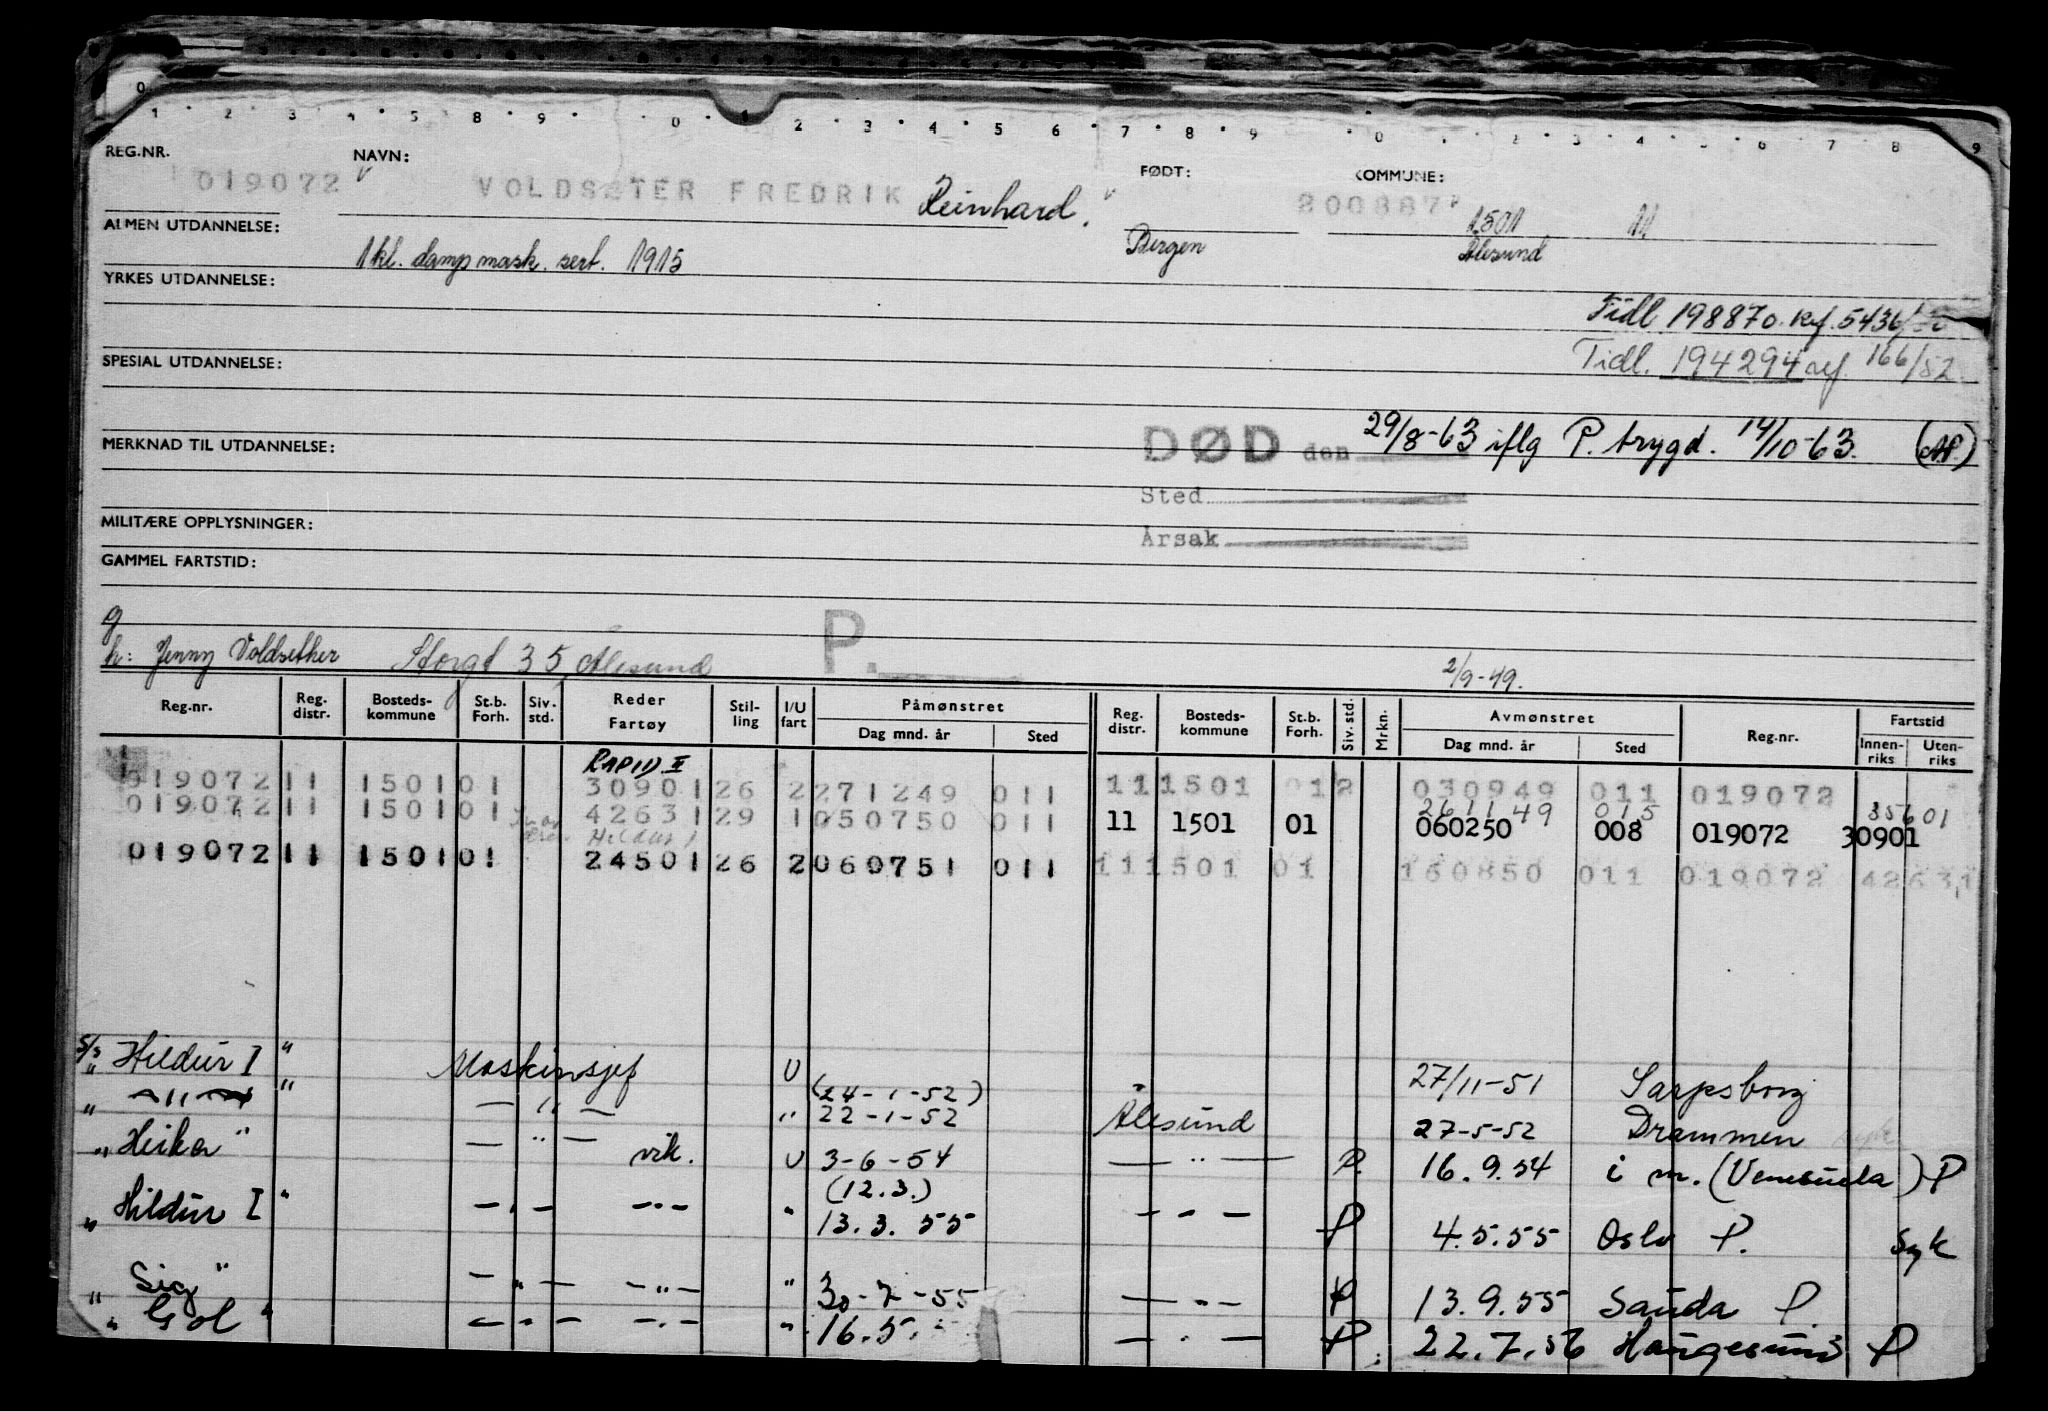 REG.NR. NAVN: FØDT: KOMMUNE:
019072 VOLDSETER FREDRIK Reinhard. 200887 1501 11
ALMEN UTDANNELSE: 1 kl. damp mask. sert. 1915 Bergen Ålesund
YRKES UTDANNELSE:
Tidl 198870. ref. 5436/
SPESIAL UTDANNELSE: Tidl. 194294 ref. 166/52
MERKNAD TIL UTDANNELSE: DØD den 29/8-63 iflg P. trygd. 14/10-63.
Sted
MILITÆRE OPPLYSNINGER: Årsak
GAMMEL FARTSTID:
g P.
h: Jenny Voldsether Storgt 35, Ålesund 2/9-49.
Reg.nr. Reg. distr. Bosteds-kommune St.b. Forh. Siv. std. Reder Fartøy Stil-ling I/U fart Påmønstret Dag mnd. år Sted Reg. distr. Bosteds-kommune St.b. Forh. Siv. std. Mrkn. Avmønstret Dag mnd. år Sted Reg.nr. Fartstid Innen-riks Uten-riks
RAPID II
019072 11 1501 01 30901 26 2 271249 011 11 1501 01 2 030949 011 019072
261149 015 35601
019072 11 1501 01 42631 29 1 050750 011 11 1501 01 060250 008 019072 30901
Hildur I
019072 11 1501 01 24501 26 2 060751 011 11 1501 01 160850 011 019072 42631
S/S Hildur I " Maskinsjef U 27/11-51 Sarpsborg
" —"— " — " — " (24-1-52) 22-1-52 Ålesund 27-5-52 Drammen
" Heika " — " — vik. U 3-6-54 — " — P. 16.9.54 i m. (Venesuela) P
" Hildur I " — " — — " — " (12.3.) 13.3.55 — " — P 4.5.55 Oslo P. Syk
" Sig " — " — — " — " 30-7-55 — " — P 13.9.55 Sauda P.
" Gol " — " — — " — " 16.5. — " — P. 22.7.56 Haugesund P